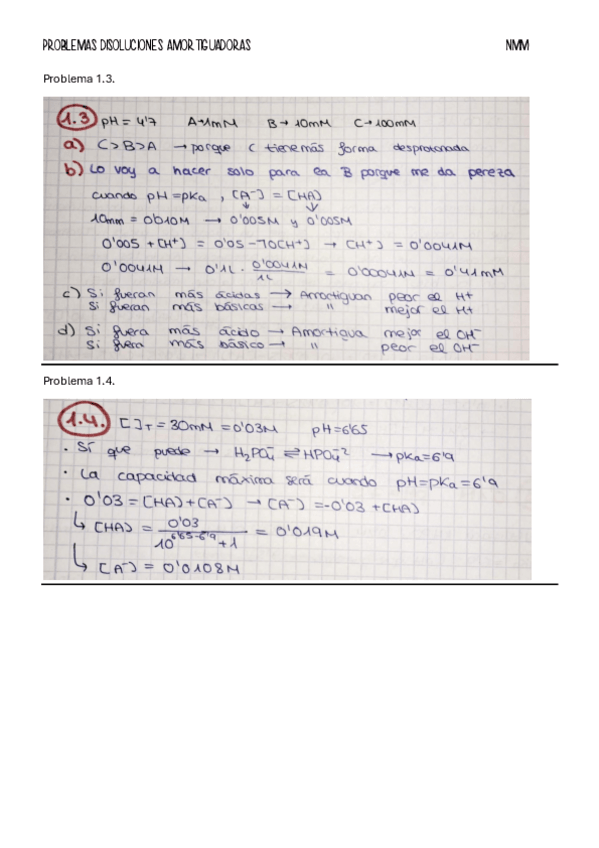 PROBLEMAS DISOLUCIONES AMORTIGUADORAS NMM
Problema 1.3.
1.3 pH = 4'7 A→1mM B→ 10mM C→100mM
a) C>B>A → porque C tiene más forma desprotonada
b) Lo voy a hacer solo para la B porque me da pereza
cuando pH=pKa , [A⁻] = [HA]
10mm = 0'010M → 0'005M y 0'005M
0'005 + [H⁺] = 0'05 - 10[H⁺] → [H⁺] = 0'0041M
0'0041M → 0'1L · 0'0041M / 1L = 0'00041M = 0'41mM
c) Si fueran más ácidas → Amortiguan peor el H+
Si fueran más básicas → " mejor el H+
d) Si fuera más ácido → Amortigua mejor el OH⁻
Si fuera más básico → " peor el OH⁻
Problema 1.4.
1.4. [ ]T = 30mM = 0'03M pH=6'65
· Sí que puede → H₂PO₄⁻ ⇌ HPO₄⁻² → pKa=6'9
· La capacidad máxima será cuando pH=pKa=6'9
· 0'03 = [HA]+[A⁻] → [A⁻] =-0'03 +[HA]
↳ [HA] = 0'03 / 10^6'65-6'9 +1 = 0'019M
↳ [A⁻] = 0'0108M